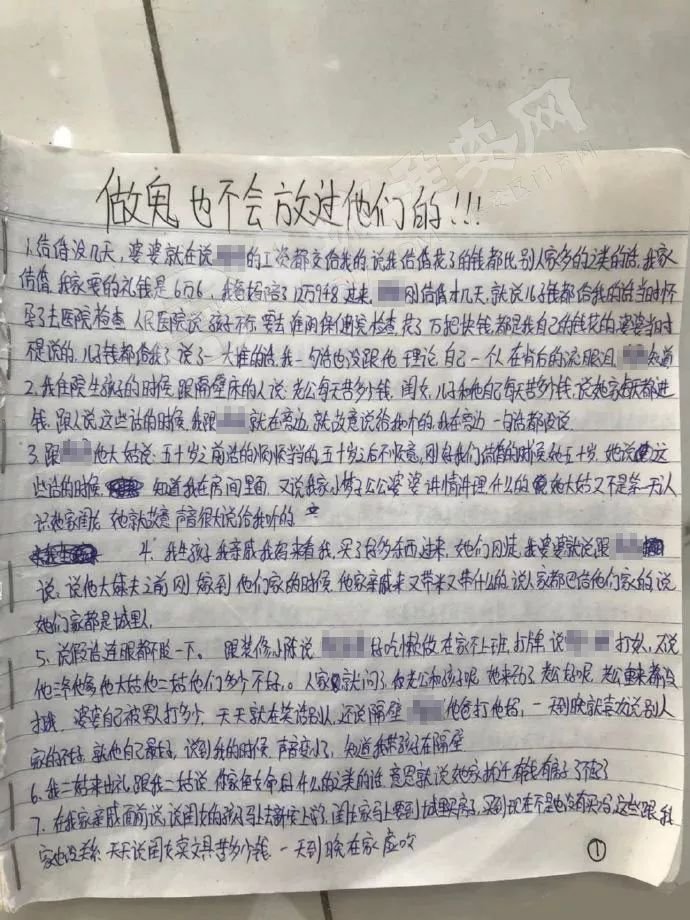 做鬼也不会放过他们的!!!
1.结婚没几天,婆婆就在说 的工资都交给我的,说我结婚花了的钱都比别人家多的之类的话,我家
结婚,我家要的礼钱是6万6,我爸妈陪了12万9千8过来, 刚结婚才几天,就说儿子钱都给我的话当时怀
孕了去医院检查,人民医院说孩子不行,要去淮阴保健院检查,花了万把块钱,都是我自己的钱花的,婆婆当时
说的,儿子钱都给我了,说了一大堆的话,我一句话也没跟他理论,自己一个人在背后的流眼泪, 知道
2.我住院生孩子的时候,跟隔壁床的人说,老公每天苦多少钱,闺女,儿子和她自己每天苦多少钱,说她家每天都进
钱,跟人说这些话的时候,我跟 就在旁边,就故意说给我听的,我在旁边一句话都没说
3.跟 他大姑说,五十岁之前活的顺顺当当的,五十岁之后不如意,刚好我们结婚的时候她五十岁,她说这
些话的时候 知道我在房间里面,又说我家小婷子公公婆婆讲情讲理什么的,他大姑又不是第一天认
识她家闺女,她就故意声音很大说给我听的
4.我生孩子,我亲戚我妈来看我,买了好多东西过来,她们刚走,我婆婆就说跟
说,说他大妹夫之前刚嫁到他们家的时候,他家亲戚来又带米又带什么的,说人家都巴结他们家的,说
她们家都是城里人.
5.说假话连眼都不眨一下。跟装修小陈说 好吃懒做在家不上班,打牌,说 打奴,又说
他三爷他爹他大姑他二姑他们多少不好。人家就问了你老公和孩子呢,她来劲了,老公好呢,老公重来都没
打我,婆婆自己被累打多少,天天就在笑话别人,还说隔壁 他爸打他妈,一天到晚就喜欢说别人
家的不好,就他自己最好,说到我的时候,声音变小了,知道我带孩子在隔壁
6.我二姑来出礼,跟我二姑说,你家侄女命好什么的之类的话,意思就说她家拆迁有钱有房子了不起了
7.在我家亲戚面前说,说闺女的孩子马上去新安上学,闺女家马上要到城里买房子,买到现在不是也没有买吗,这些跟我
家也没关系,天天说闺女卖文具苦多少钱.一天到晚在家应吹
①